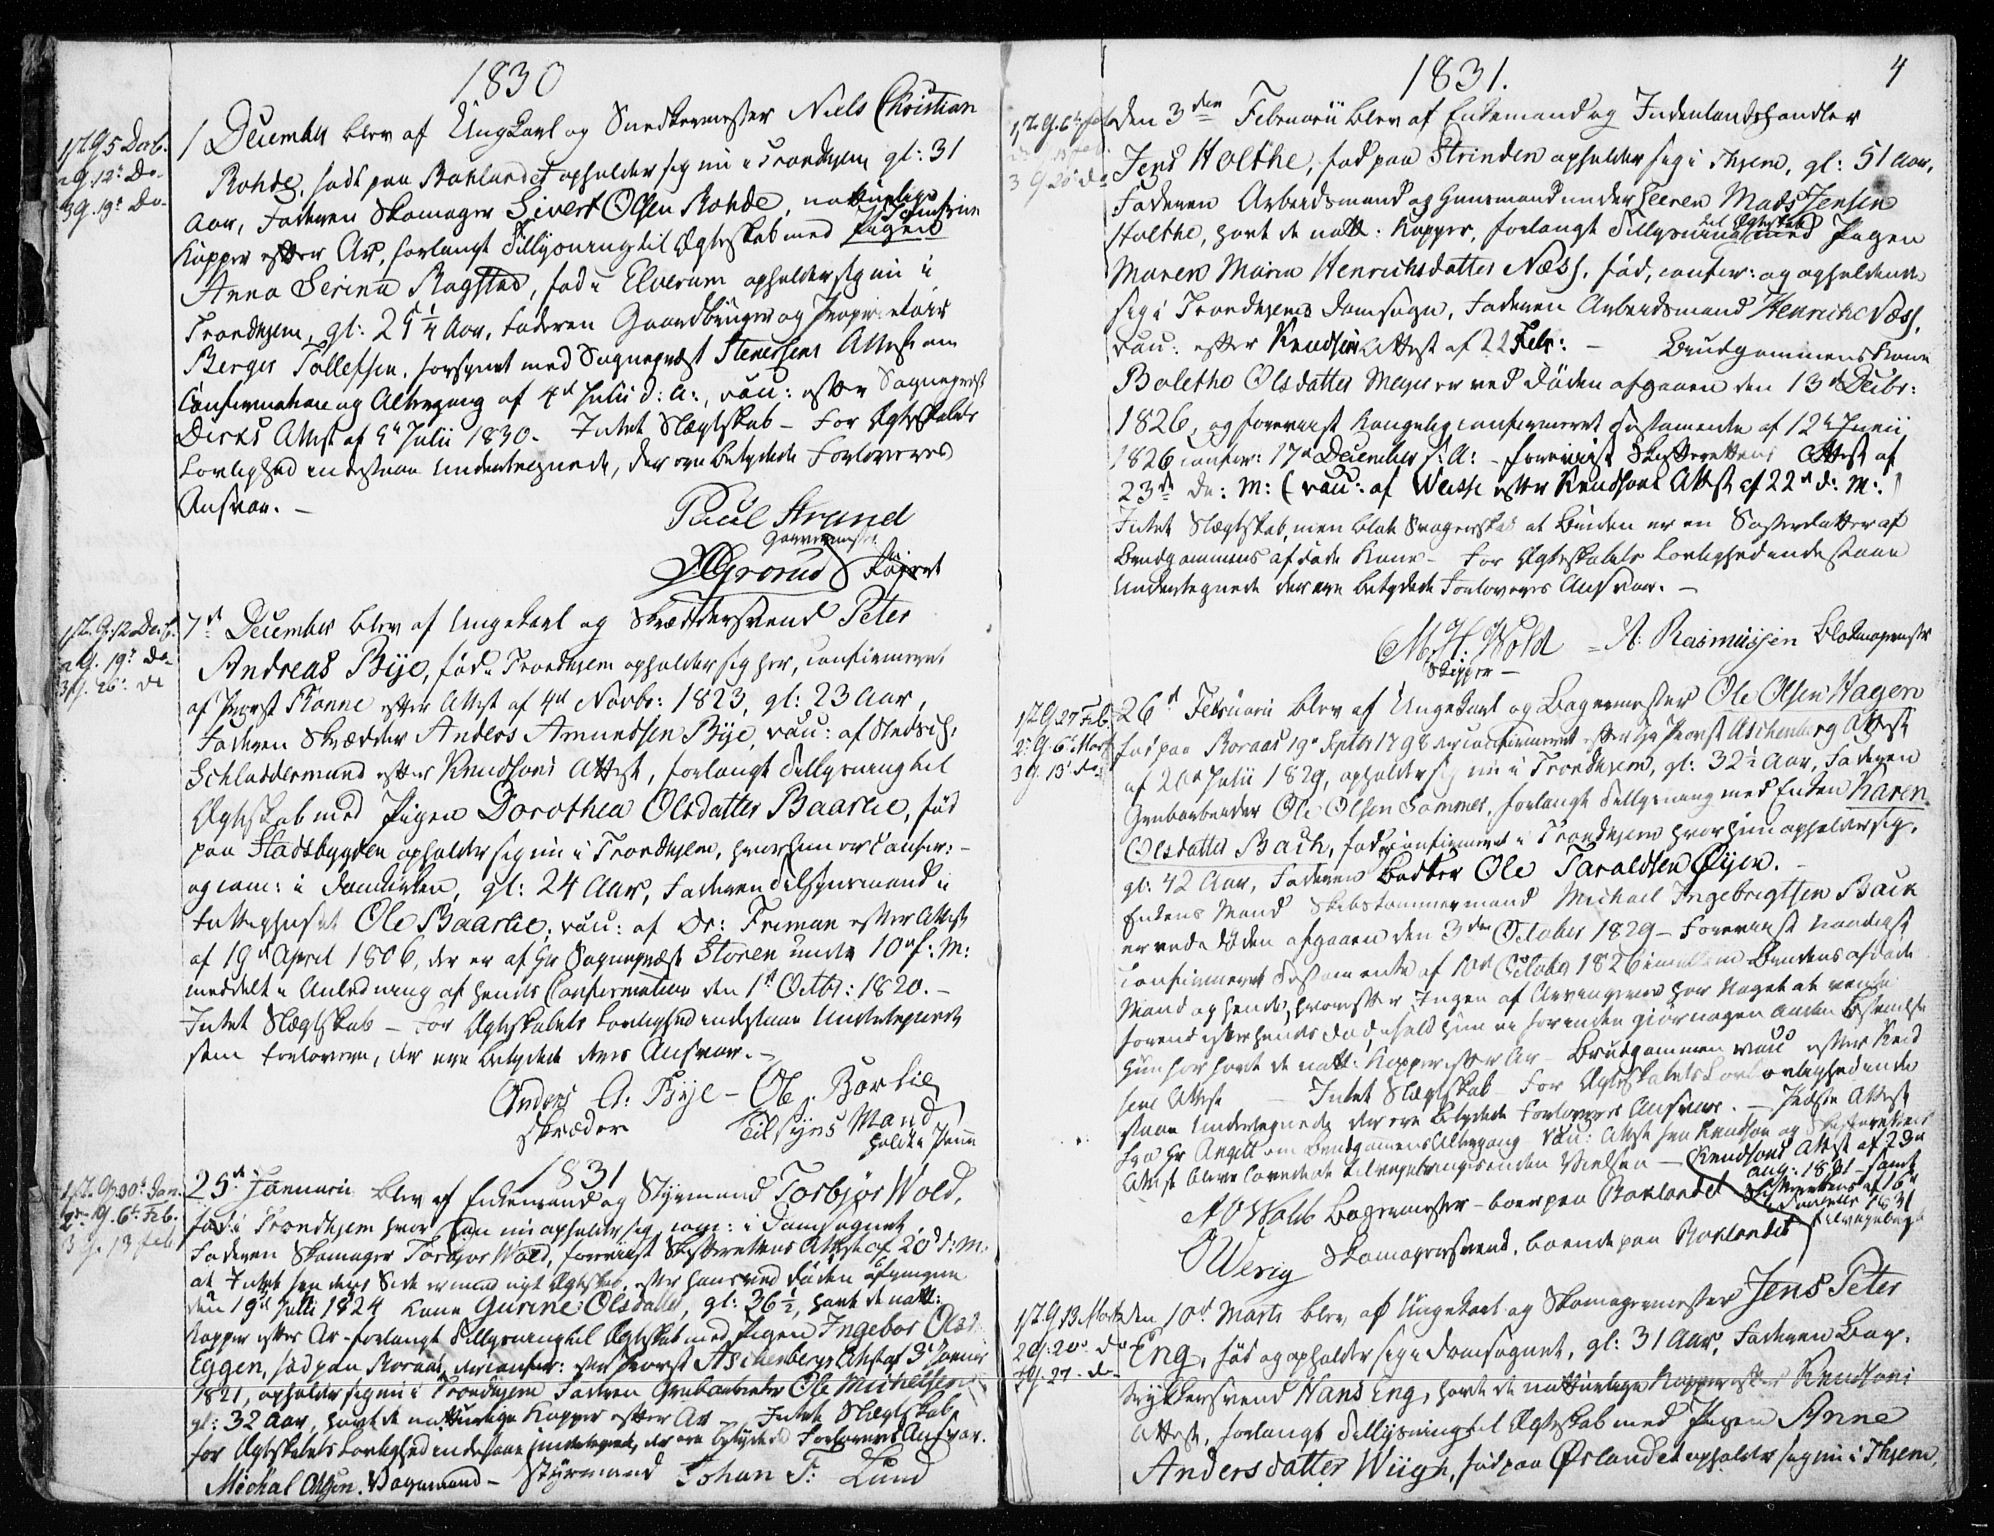 1830
1st. G. 5 Decb.
2 G. 12t Do.
3 G. 19t Do.
1 December blev af Ungkarl og Snedkermester Niels Christian
Rohde, født paa Baklandet opholder sig nu i Trondhjem gl: 31
Aar, Faderen Skomager Sivert Olsen Rohde, naturlige
Kopper efter Ar, forlangt Tillysning til Ægteskab med Pigen
Anna Serina Ragstad, fød i Elverum opholder sig nu i
Trondhjem, gl: 25 1/4 Aar, Faderen Gaardbruger og Proprietair
Berger Tollefsen, forsynet med Sognepræst Stenersens Attest om
Confirmation og Altergang af 4d Julii d: A:, vac: efter Sognepræst
Dircks Attest af 5t Julii 1830. Intet Slægtskab – For Ægteskabets
Lovlighed indestaae Undertegnede, der ere betydede Forloveres
Ansvar. –
Paul Strand
Garvermester
Grorud
1st. G. 12 Decb.
2 G. 19t do
3 G. 26t do
7d December blev af Ungekarl og Skræddersvend Peter
Andreas Bye, fød i Trondhjem opholder sig her, confirmeret
af Provst Rønne efter Attest af 4de Novbr: 1823, gl: 23 Aar,
Faderen Skrædder Anders Amundsen Bye, vac: af Medisch:
Schluddermand efter Knudtzons Attest, forlangt Tillysning til
Ægteskab med Pigen Dorothea Olsdatter Baarlie, fød
paa Stadsbygden opholder sig nu i Trondhjem, hvor hun er Confir: –
og com: i Domkirken, gl: 24 Aar, Faderen Tilsynsmand i
Fattighuset Ole Baarlie, vac: af Dr: Friman efter Attest
af 19d April 1806, der er af Hr Sognepræst Støren under 10d f: M:
meddelt i Anledning af hendes Confirmation den 1st Octbr: 1820. –
Intet Slægtskab – For Ægteskabets Lovlighed indestaae Undertegnede
som Forlovere, der ere betydede deres Ansvar. –
Anders A: Bye – Ole Borlie
Skræder Tilsyns Mand
holdt i Penn
1831
1st. G. 30t Jan.
2 G. 6t Feb.
3 G. 13 feb
25d Januarii blev af Enkemand og Styrmand Torbjør Wold,
fød i Trondhjem hvor han nu opholder sig, com: i Domsognet,
Faderen Skomager Torbjør Wold, foreviist Skifterettens Attest af 20d d: M:
at Intet fra dens Side er imod nyt Ægteskab, efter hans ved Døden afgangne
den 19d Julii 1824 Kone Gurine Olsdatter, gl: 36 1/2, havt de natt:
Kopper efter Ar – forlangt Tillysning til Ægteskab med Pigen Ingebor Olsd:
Eggen, fød paa Roraas, der confir: efter Provst Aschenbergs Attest af 3d Januar
1821, opholder sig nu i Trondhjem Faderen Grubearbeider Ole Michelsen
gl: 32 Aar, havt de naturlige Kopper efter Ar – Intet Slægtskab,
for Ægteskabets Lovlighed indestaae Undertegnede, der ere betydede Forloveres Ansvar.
Michal Olsen Styrmand Johan T: Lund
1831.
4
1st. G. 6t feb
3 G 20t do
Den 3den Februarii blev af Enkemand og Indenlandshandler
Jens Holthe, fød paa Strinden opholder sig i Thjem, gl: 51 Aar,
Faderen Arbeidsmand og Huusmand under Leeren Mads Jensen
Holthe, havt de natt: Kopper, forlangt Tillysning til Ægteskab med Pigen
Maren Maria Henrichsdatter Næss, fød, confir: og opholdende
sig i Trondhjems Domsogn, Faderen Arbeidsmand Henrich Næss,
vac: efter Knudsen Attest af 22 Febr: – Brudgommens Kone
Bolethe Olsdatter Meyer er ved Døden afgaaen den 13d Decbr:
1826, og foreviist Kongelig confirmeret Testamente af 12t Junii
1826 confir: 17d December s: A: – foreviist Skifterettens Attest af
23de d: M: (vac: af Weisse efter Knudsons Attest af 22d d: M:)
Intet Slægtskab, men blot Svogerskab at Bruden er en Søsterdatter af
Brudgommens afdøde Kone – For Ægteskabets Lovlighed indestaae
Undertegnede der ere betydede Forloveres Ansvar. –
M. H. Wold – A: Rasmussen Blokmagermester
Skipper –
1st. G. 27 Feb.
2t G. 6t Mart
3 G. 13t do
26d Februarii blev af Ungekarl og Bagermester Ole Olsen Hagen
fød paa Roraas 19d Septbr 1798 der confirmeret efter Hr Provst Aschenberg Attest
af 20d Julii 1829, opholder sig nu i Trondhjem, gl: 32 1/2 Aar, Faderen
Grubearbeider Ole Olsen Sommer, forlangt Tillysning med Enken Karen
Olsdatter Bach, fød og confirmeret i Trondhjem hvor hun opholder sig,
gl: 42 Aar, Faderen Bødker Ole Taraldsen Øyen. –
Enkens Mand Skibstømmermand Michael Ingebrigtsen Back
er ved Døden afgaaen den 3den October 1829 – Foreviist naadigst
confirmeret Testamente af 10d October 1826 imellem Brudens afdøde
Mand og hende, hvorefter Ingen af Arvingerne har Noget at vente
forend efter hendes Død, ifald hun ei forinden gior nogen anden Bestemmelse
hun har havt de natt: Kopper efter Ar – Brudgommen vac efter Knud
sens Attest – Intet Slægtskab for Ægteskabets Lovlighed inde
staae Undertegnede der ere betydede Forloveres Ansvar. – Præste Attest
fra Hr Angell om Brudgommens Altergang vac: Attest fra Knudson og Skifterettens
Attest bleve lovede at tilveyebringes inden Vielsen – Knudsons Attest af 2den
Aug: 1821 – samt
Skifterettens af 16d
Januar 1831
tilveyebragt
A O Wold Bagermester – boer paa Baklandet
O Werig Skomagersvend, boende paa Baklandet
1st. G 13 Marts
2 G: 20t do
3 G. 27. do
Den 10d Marts blev af Ungekarl og Skomagermester Jens Peter
Eng, fød og opholder sig i Domsognet, gl: 31 Aar, Faderen Bog-
trykkersvend Hans Eng, havt de naturlige Kopper efter Knudsons
Attest, forlangt Tillysning til Ægteskab med Pigen Anne
Andersdatter Wiig, fød paa Ørlandet opholder sig nu i Thjem,